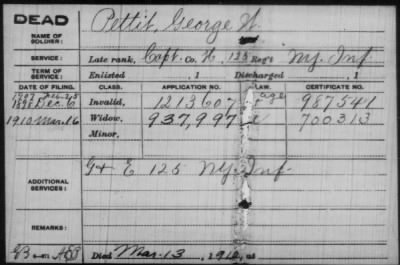 DEAD
NAME OF SOLDIER: Pettit, George W.
SERVICE: Late rank, Capt. Co. H, 125 Reg't N.Y. Inf
TERM OF SERVICE: Enlisted , 1 Discharged , 1
DATE OF FILING. CLASS. APPLICATION NO. LAW. CERTIFICATE NO.
1907 Feb. 25 age
1896 Dec. 6 Invalid, 1213607 987541
1910 Mar. 16 Widow, 937,997 700313
Minor,
ADDITIONAL SERVICES: G + E 125 N.Y. Inf
REMARKS:
Died Mar. 13, 1910, at